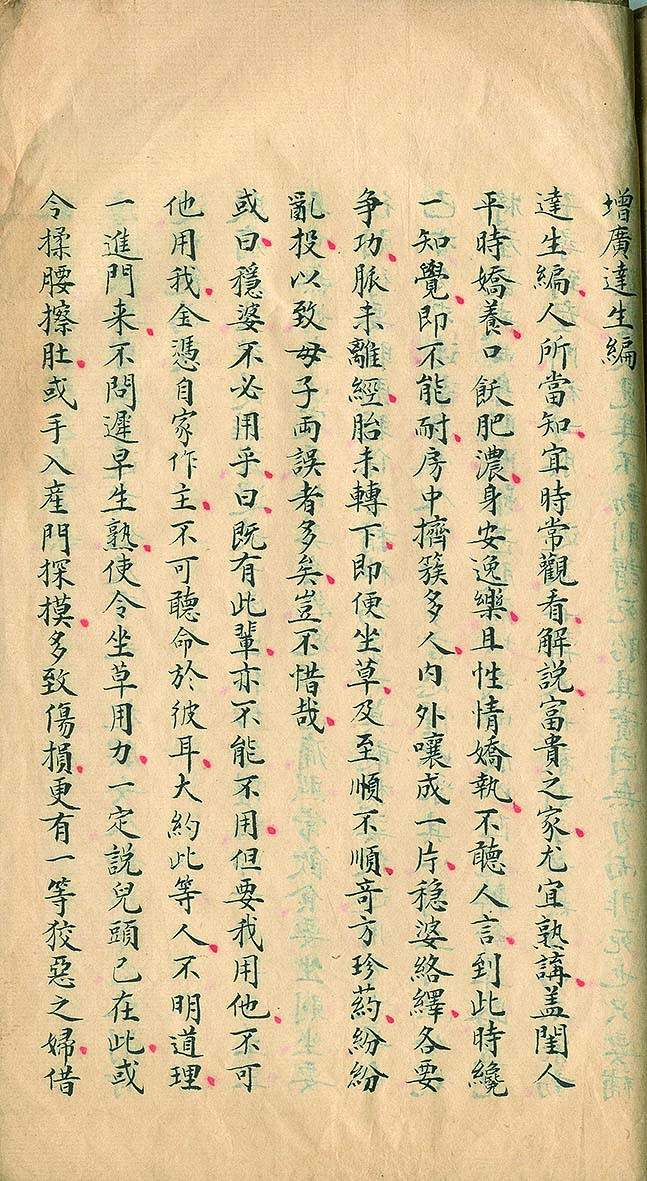 增廣達生編
達生編人所當知宜時常觀看解說富貴之家尤宜熟講盖閨人
平時嬌養口飫肥濃身安逸樂且性情嬌執不聽人言到此時纔
一知覺即不能耐房中擠簇多人內外嚷成一片穏婆絡繹各要
争功脈未離經胎未轉下即便坐草及至順不順奇方珍葯紛紛
亂投以致母子両誤者多矣豈不惜哉
或曰穩婆不必用乎曰既有此輩亦不能不用但要我用他不可
他用我全憑自家作主不可聽命於彼耳大約此等人不明道理
一進門来不問遲早生熟使令坐草用力一定說兒頭已在此或
令揉腰擦肚或手入産門探摸多致傷損更有一等狡惡之婦借